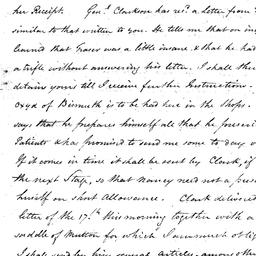 her Receipt. Genl. Clarkson has recd. a letter from
similar to that written to you. He tells me that on in
learned that Fraser was a little insane & that he had
a trifle without answering his letter. I shall there
detain yours till I receive further Instructions.
oxyd of Bismuth is to be had here in the Shops.
says that he prepares himself all that he prescri
Patients & has promised to send me some to day o
If it comes in time it shall be sent by Clark, if
the next Stage, so that Nancy need not a
herself on short Allowance. Clark delivered
letter of the 17th. this morning together with a
saddle of Mutton for which I am much obli
I shall send by him several articles, among other